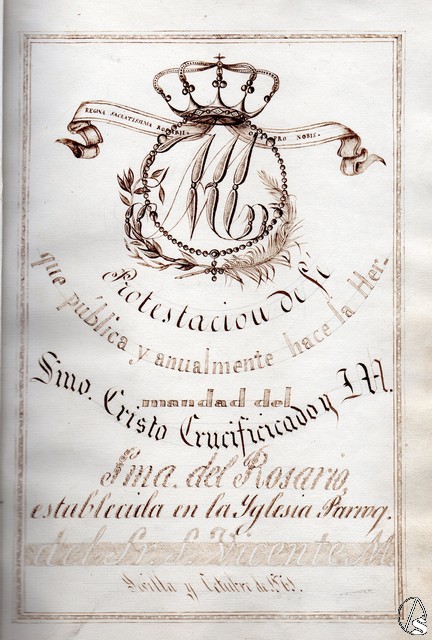 REGINA SACRATISSIMI ROSARII PRO NOBIS.
M
Protestacion de fé
que pública y anualmente hace la Her-
mandad del
Smo. Cristo Crucificicado y M.
Sma. del Rosario,
establecida en la Yglesia Parroq.
del Sr. S. Vicente M.
Sevilla y Octubre de